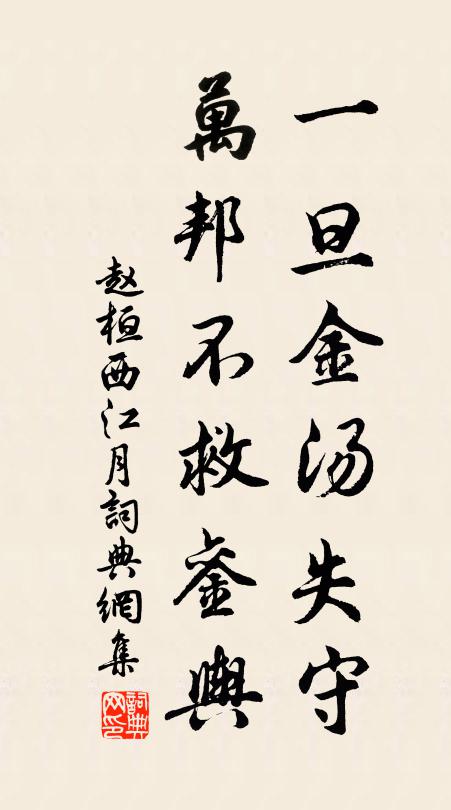 一旦金汤失守
萬邦不救銮輿
赵桓西江月詞典網集
詞典网印